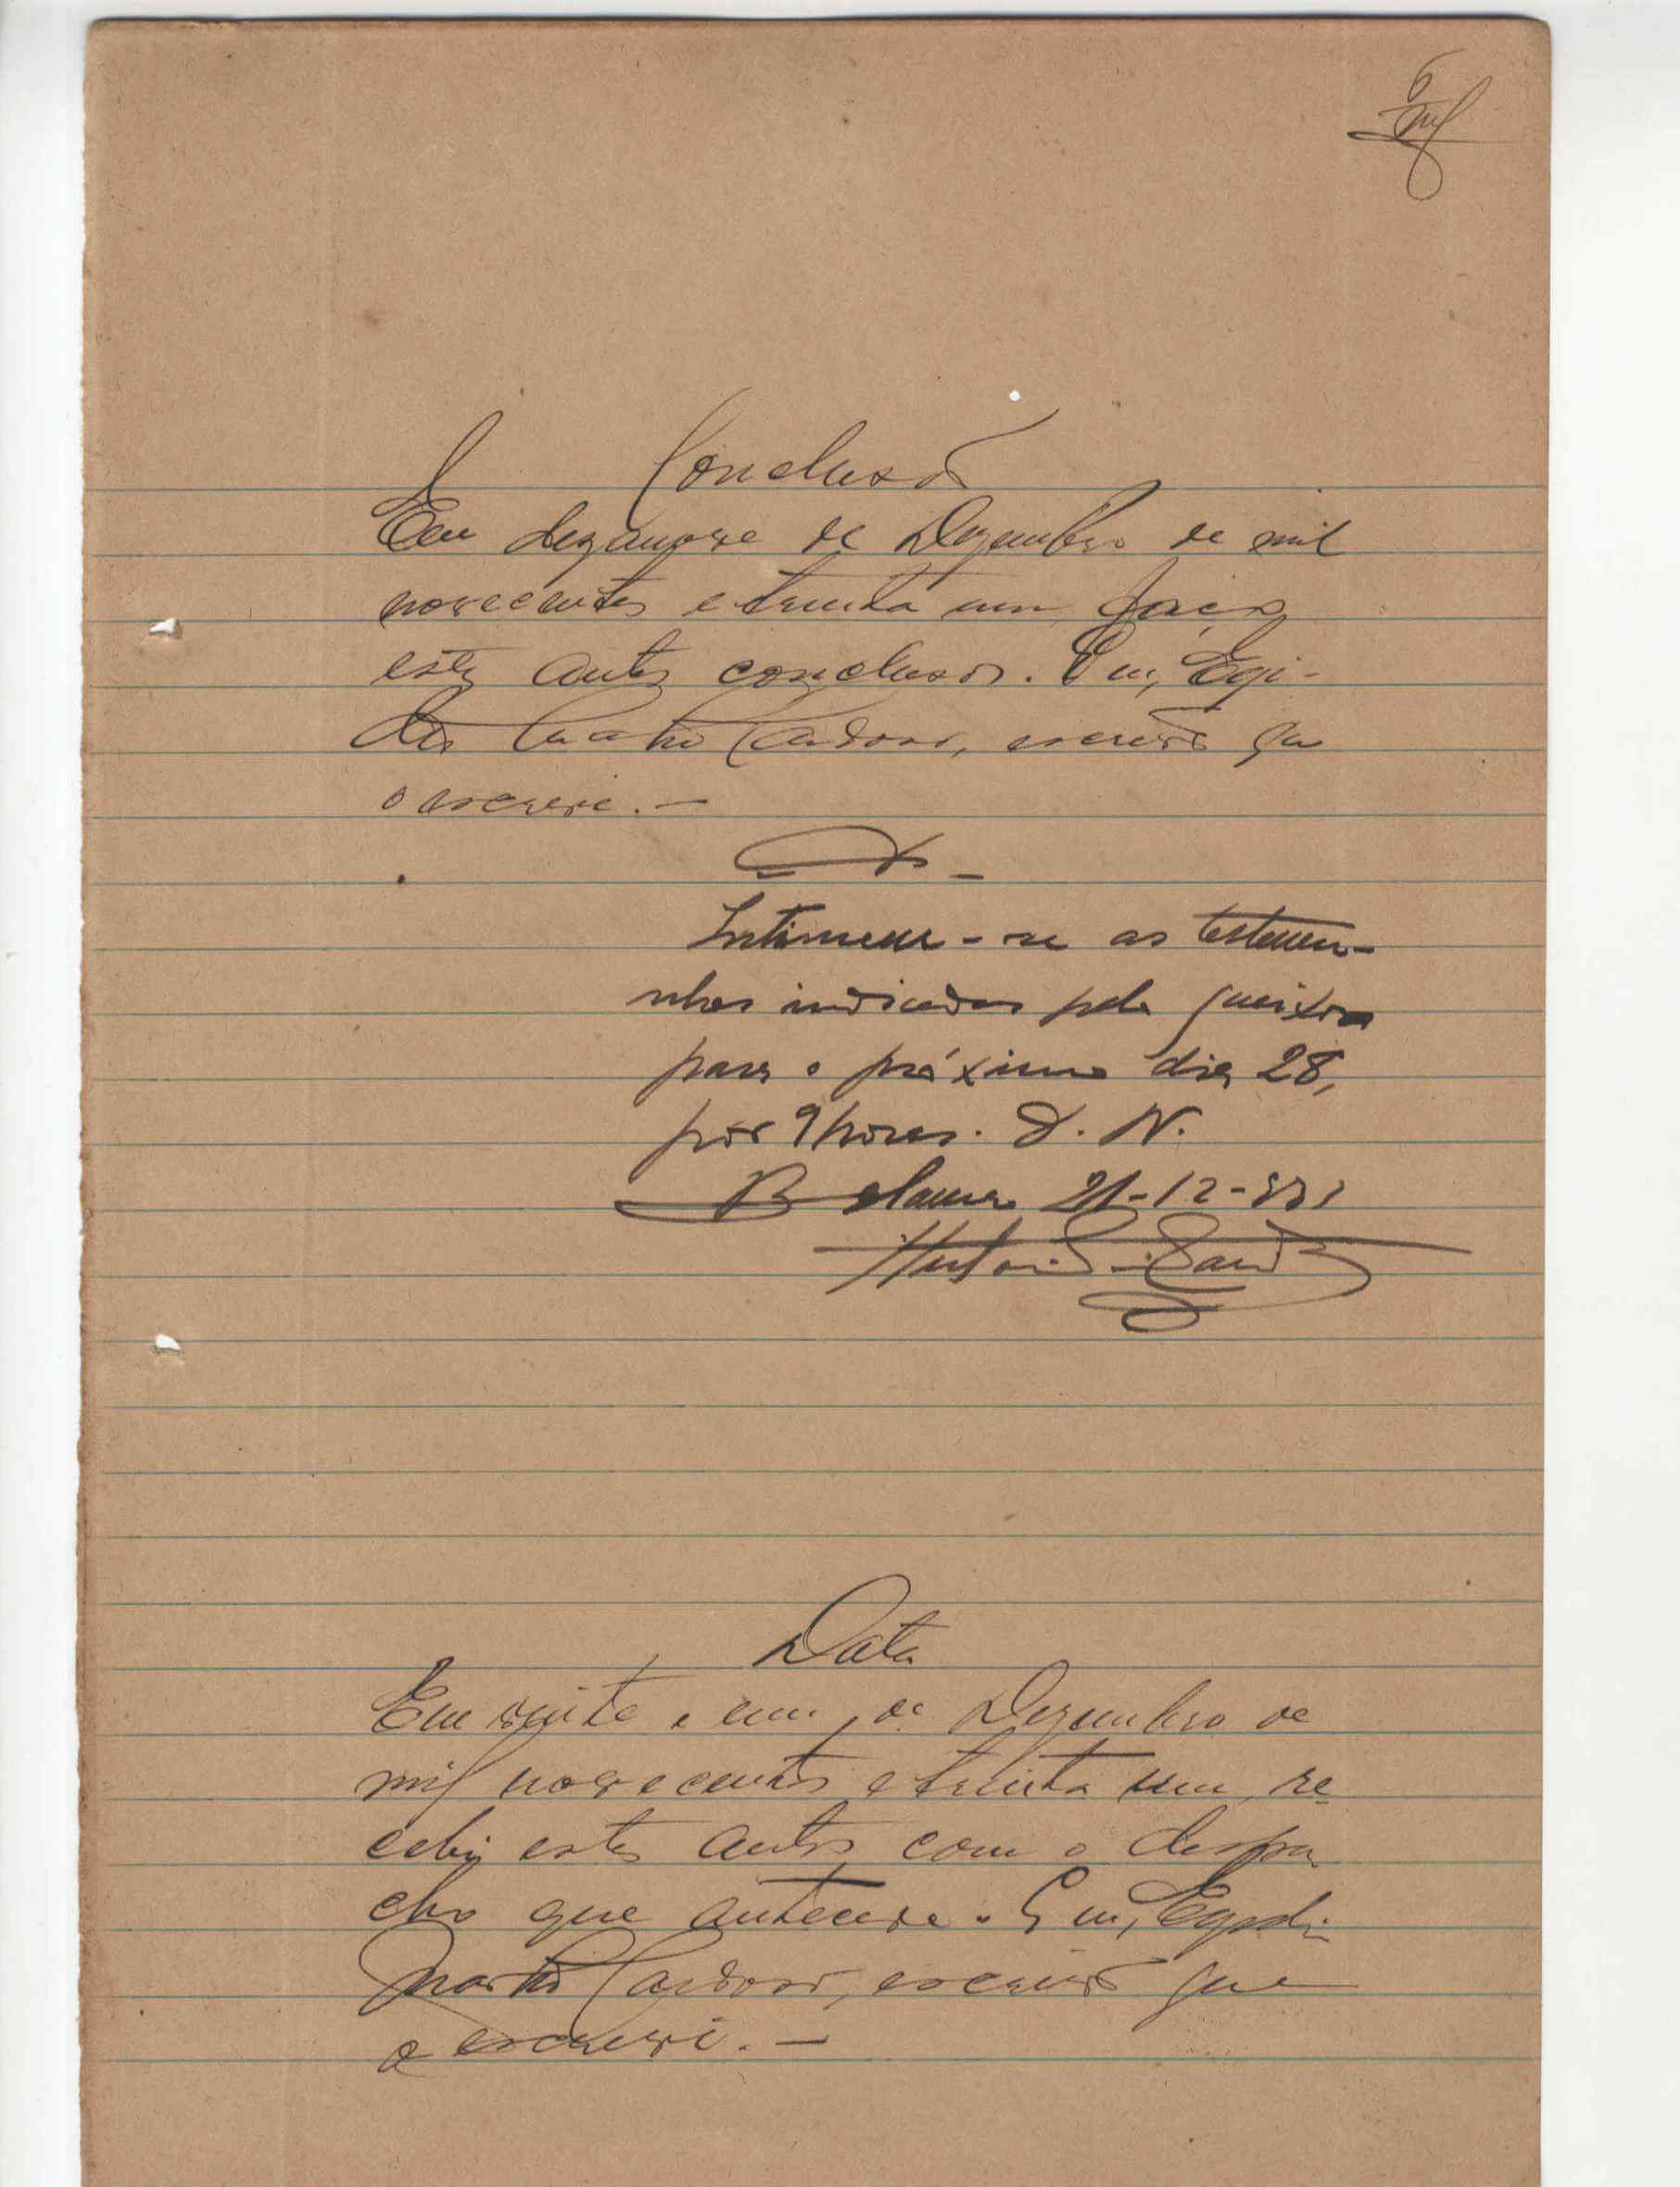 6
Conclusão
Em dezanove de Dezembro de mil
novecentos e trinta um, faço
estes autos conclusos. Eu, Egi-
Cardoso, escrivão que
o escrevi. —
Intimem-se as testemu-
nhas indicadas pela queixosa
para o próximo dia 28,
por 9 horas. D. N.
Bolama 21-12-931
Data
Em vinte e um, de Dezembro de
mil novecentos e trinta um, re-
cebi estes autos com o despa-
cho que antecede. Eu, Egidio
Cardoso, escrivão que
o escrevi. —